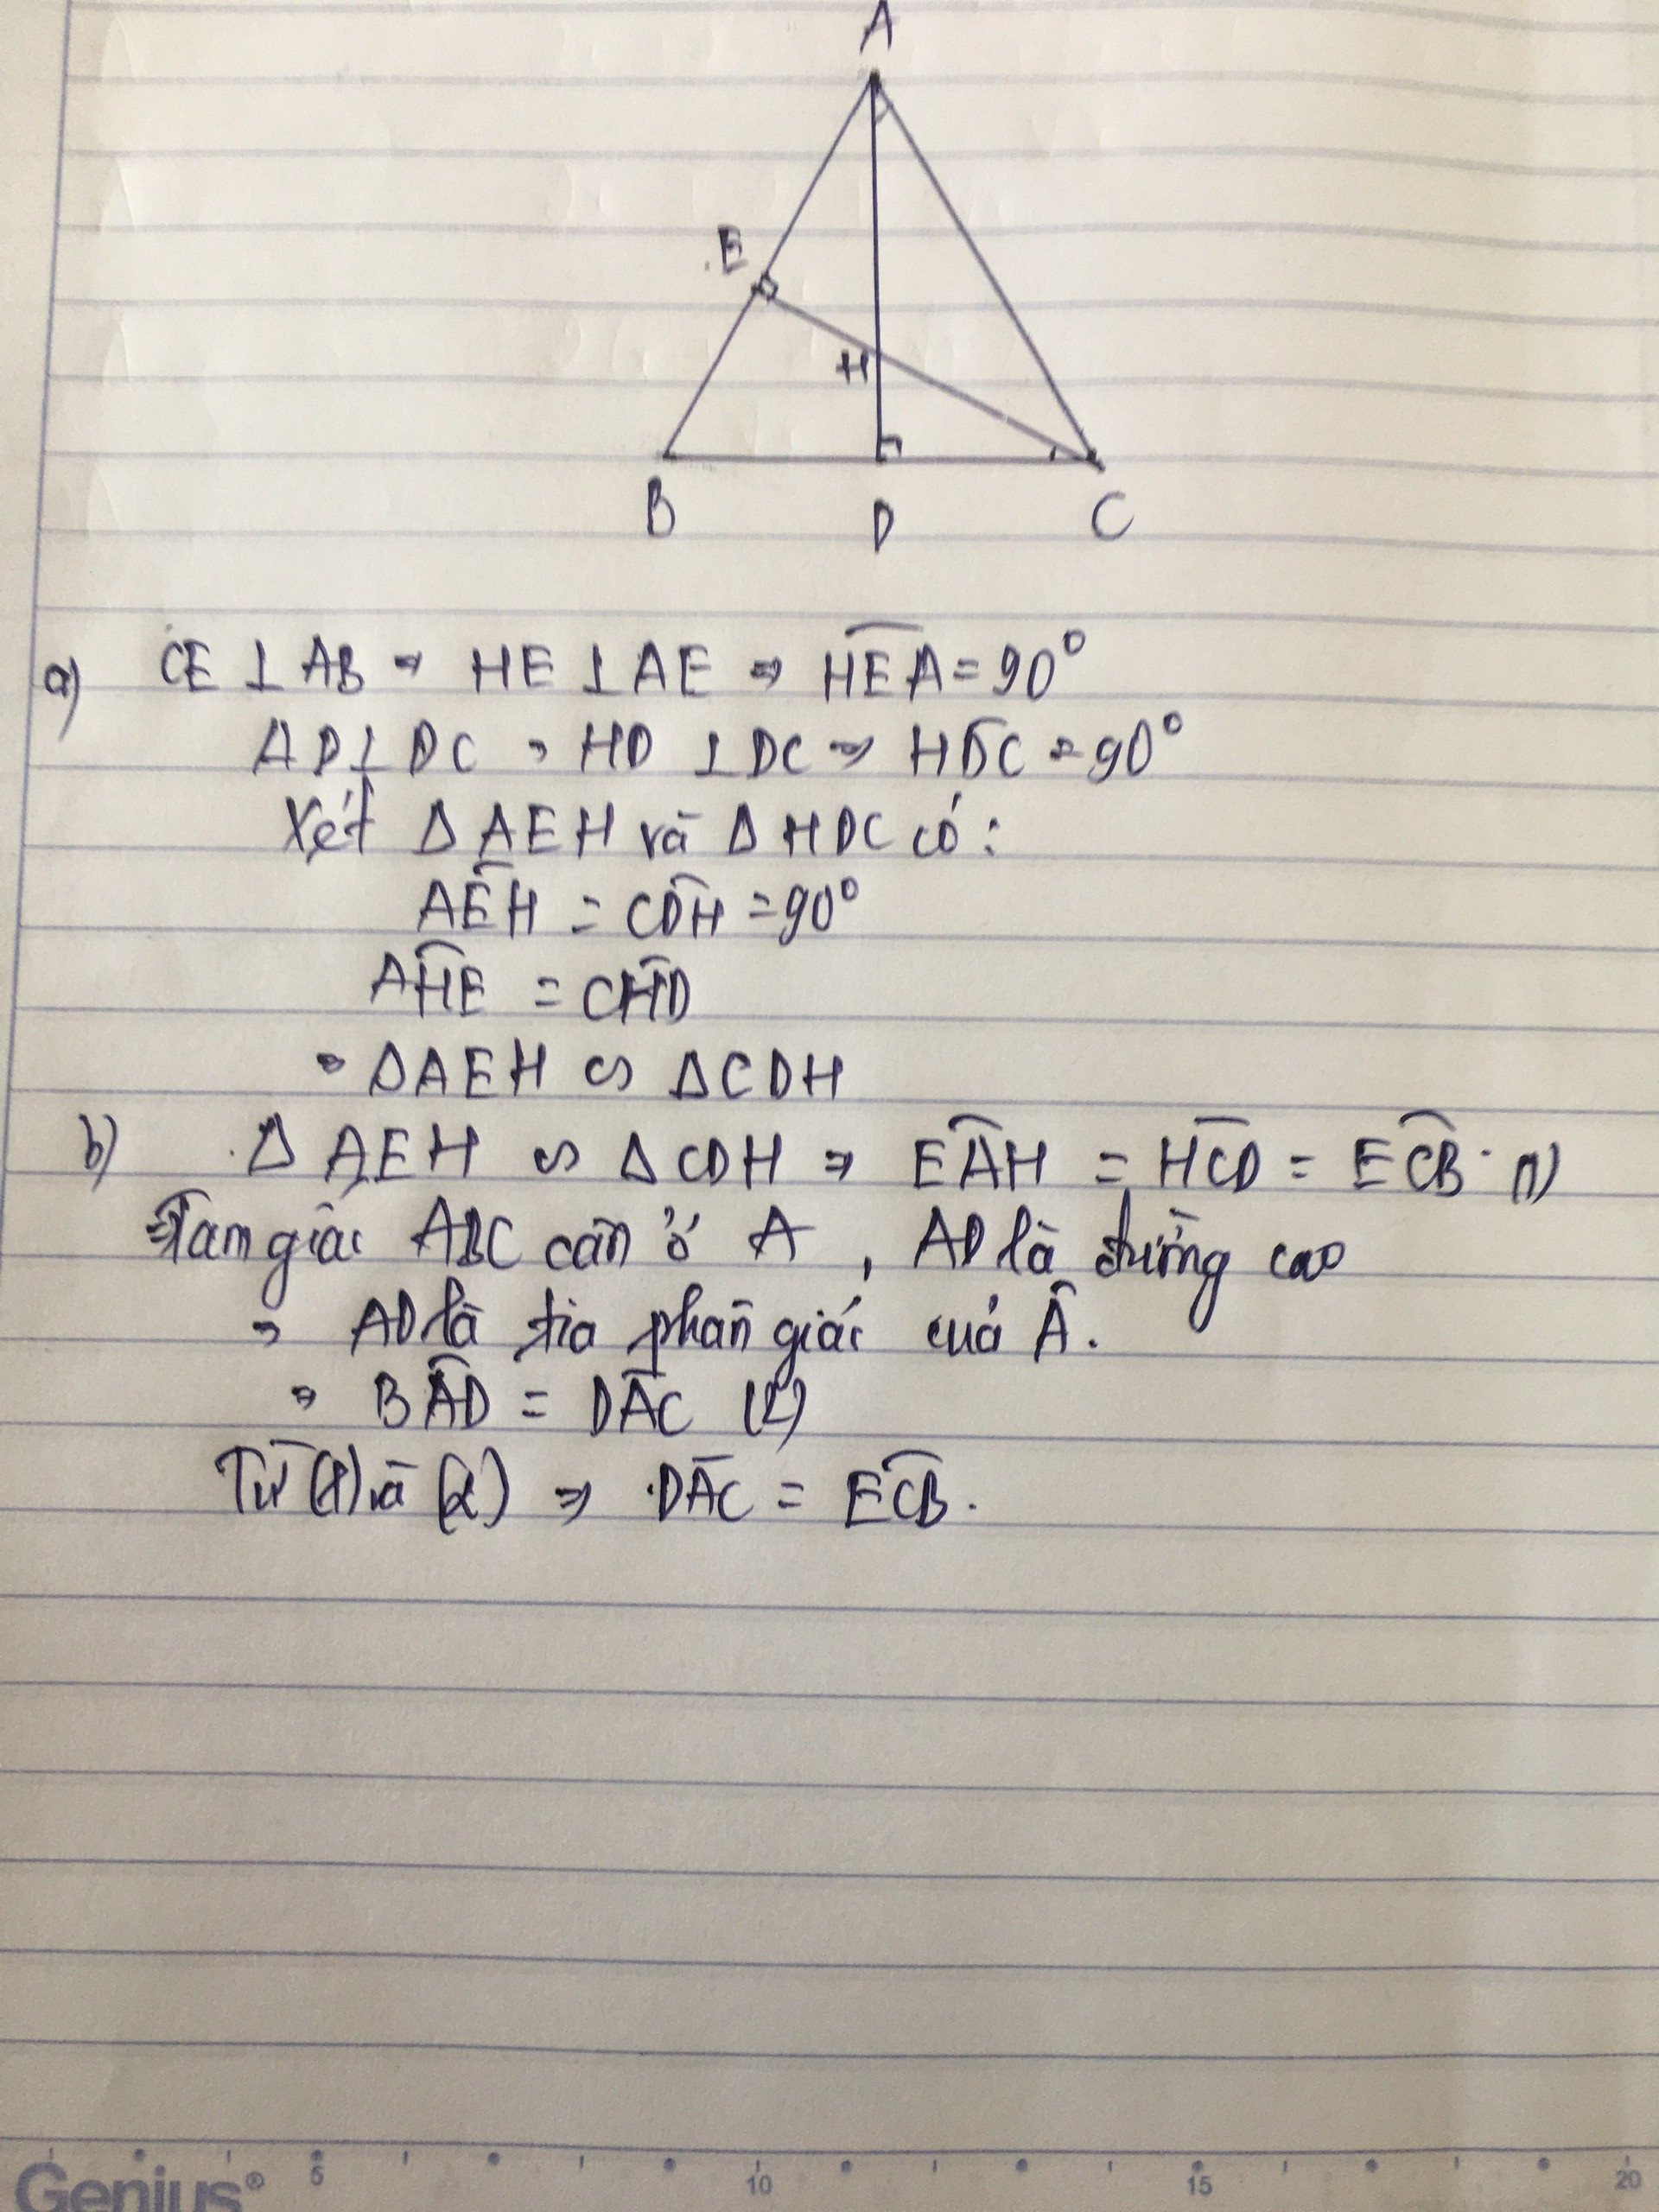 A
E
H
B D C
a) CE ⊥ AB ⇒ HE ⊥ AE ⇒ HEA = 90°
AD ⊥ DC ⇒ HD ⊥ DC ⇒ HDC = 90°
Xét Δ AEH và Δ HDC có:
AEH = CDH = 90°
AHE = CHD
⇒ ΔAEH ∽ ΔCDH
b) Δ AEH ∽ ΔCDH ⇒ EAH = HCD = ECB (1)
Tam giác ABC cân ở A, AD là đường cao
⇒ AD là tia phân giác của Â.
⇒ BAD = DAC (2)
Từ (1) và (2) ⇒ DAC = ECB.
Genius® 5 10 15 20